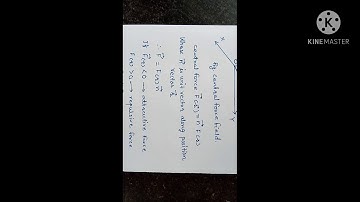 KINEMASTER
X
Y
By central force field
central force F⃗(r) = n⃗ F(r)
Where n⃗ is unit vector along position
vector r⃗
∴ F⃗ = F(r) n⃗
If F(r) < 0 → attractive force
F(r) > 0 → repulsive force